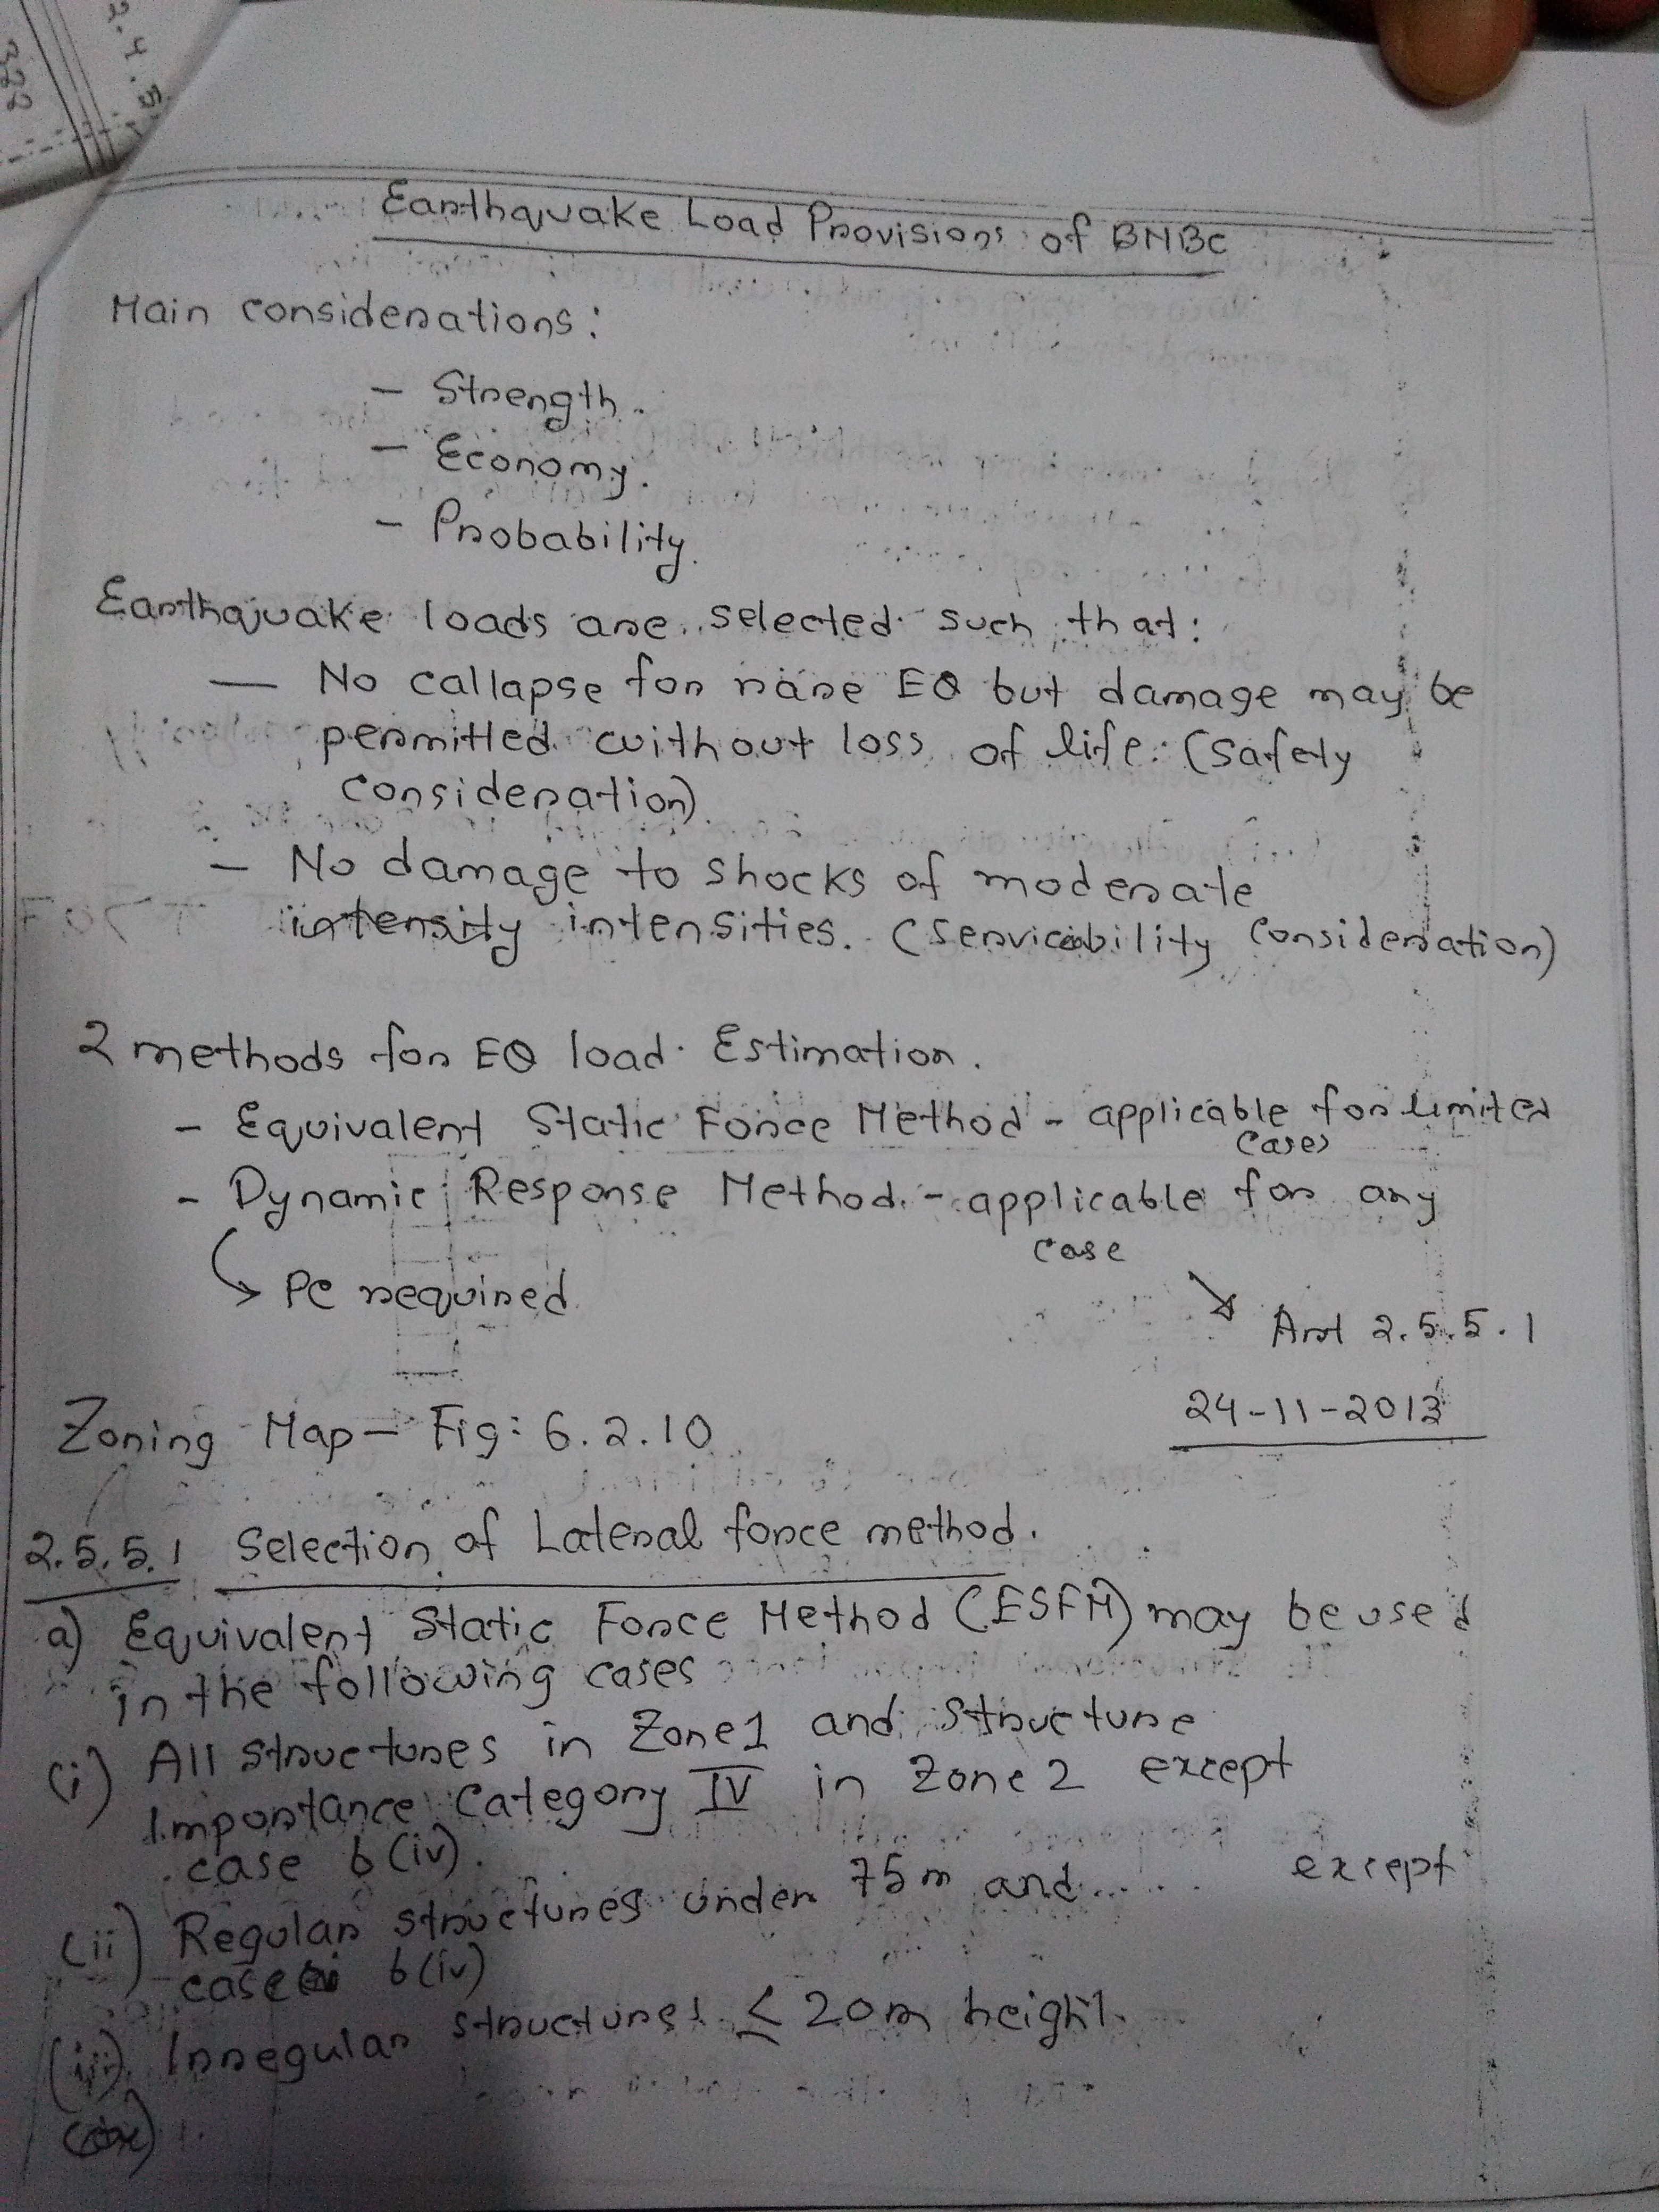 2.4.5
322
Earthquake Load Provisions of BNBC
Main considerations:
- Strength.
- Economy.
- Probability.
Earthquake loads are selected such that:
— No callapse for rare EQ but damage may be
permitted without loss of life. (Safety
consideration)
- No damage to shocks of moderate
intensity intensities. (Servicibility Consideration)
2 methods for EQ load Estimation.
- Equivalent Static Force Method - applicable for limited
cases
- Dynamic Response Method. - applicable for any
case
↳ PC required
↘ Art 2.5.5.1
24-11-2013
Zoning Map — Fig: 6.2.10
2.5.5.1 Selection of Lateral force method.
a) Equivalent Static Force Method (ESFM) may be used
in the following cases
(i) All structures in Zone 1 and structure
Importance Category IV in Zone 2 except
case b(iv).
(ii) Regular structures under 75m and...... except
case b(iv)
(iii) Irregular structures ≤ 20m height.